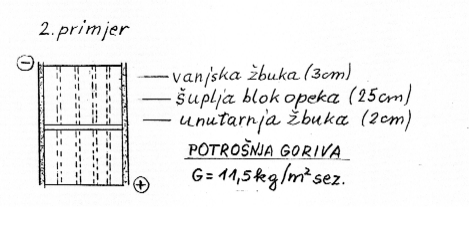 2. primjer
⊖
vanjska žbuka (3cm)
šuplja blok opeka (25cm)
unutarnja žbuka (2cm)
POTROŠNJA GORIVA
G = 11,5 kg/m² sez.
⊕